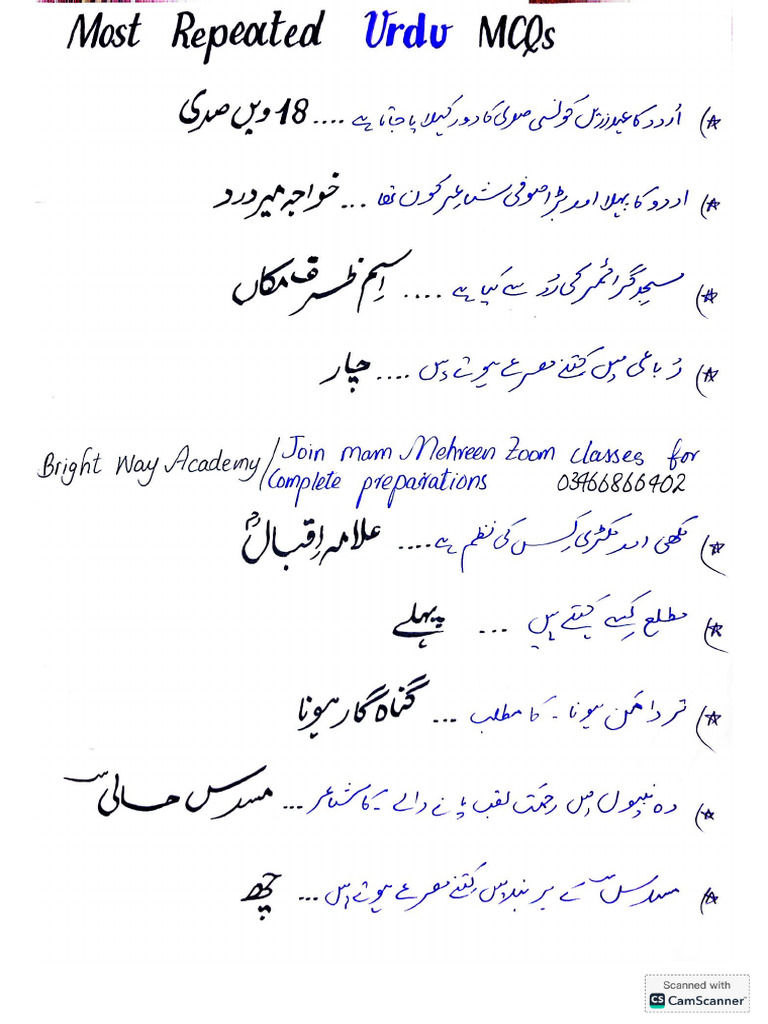 Most Repeated Urdu MCQs
اُردو کا عہد زریں کونسی صدی کا دور کہلایا جاتا ہے .... 18 ویں صدی
اردو کا پہلا اور بڑا صوفی شاعر کون تھا ... خواجہ میر درد
مسجد گرائمر کی رُو سے کیا ہے .... اِسم ظرف مکاں
رُباعی میں کتنے مصرعے ہوتے ہیں .... چار
Bright Way Academy/ Join mam Mehreen Zoom classes for
Complete preparations 03466866402
مکھی اور مکڑی کِس کی نظم ہے .... علامہ اِقبالؒ
مطلع کِسے کہتے ہیں ... پہلے
تر دامن ہونا - کا مطلب ... گناہ گار ہونا
وہ نبیوں میں رحمت لقب پانے والے - کا شاعر ... مسدس حالی
مسدس کے ہر بند میں کتنے مصرعے ہوتے ہیں ... چھ
Scanned with
CS CamScanner